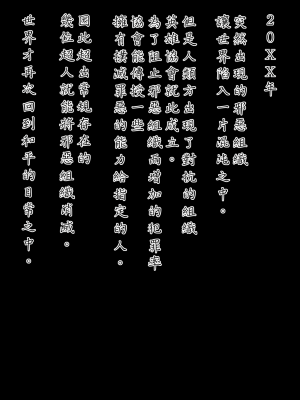 20XX年
突然出現的邪惡組織
讓世界陷入一片混沌之中。
但是人類方出現了對抗的組織
英雄協會就此成立。
為了阻止邪惡組織而增加的犯罪率
協會能傳授一些
擁有撲滅罪惡的能力給指定的人。
因此超出常規存在的
數位超人就能將邪惡組織消滅。
世界才再次回到和平的日常之中。